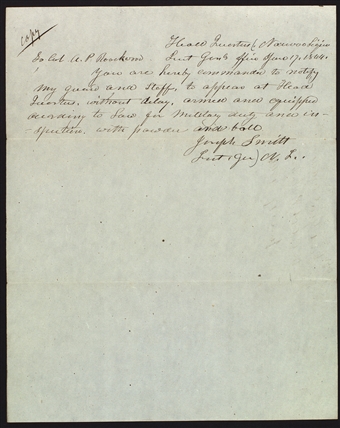 copy
Head Quarters, Nauvoo Legion
Lieut Genls office June 17, 1844.
To Col A. P. Rockwood
You are hereby commanded to notify
my guard and Staff, to appear at Head
Quarters, without delay, armed and equipped
according to Law for Military duty and in-
spection, with powder and ball
Joseph Smith
Lieut Gen N. L.